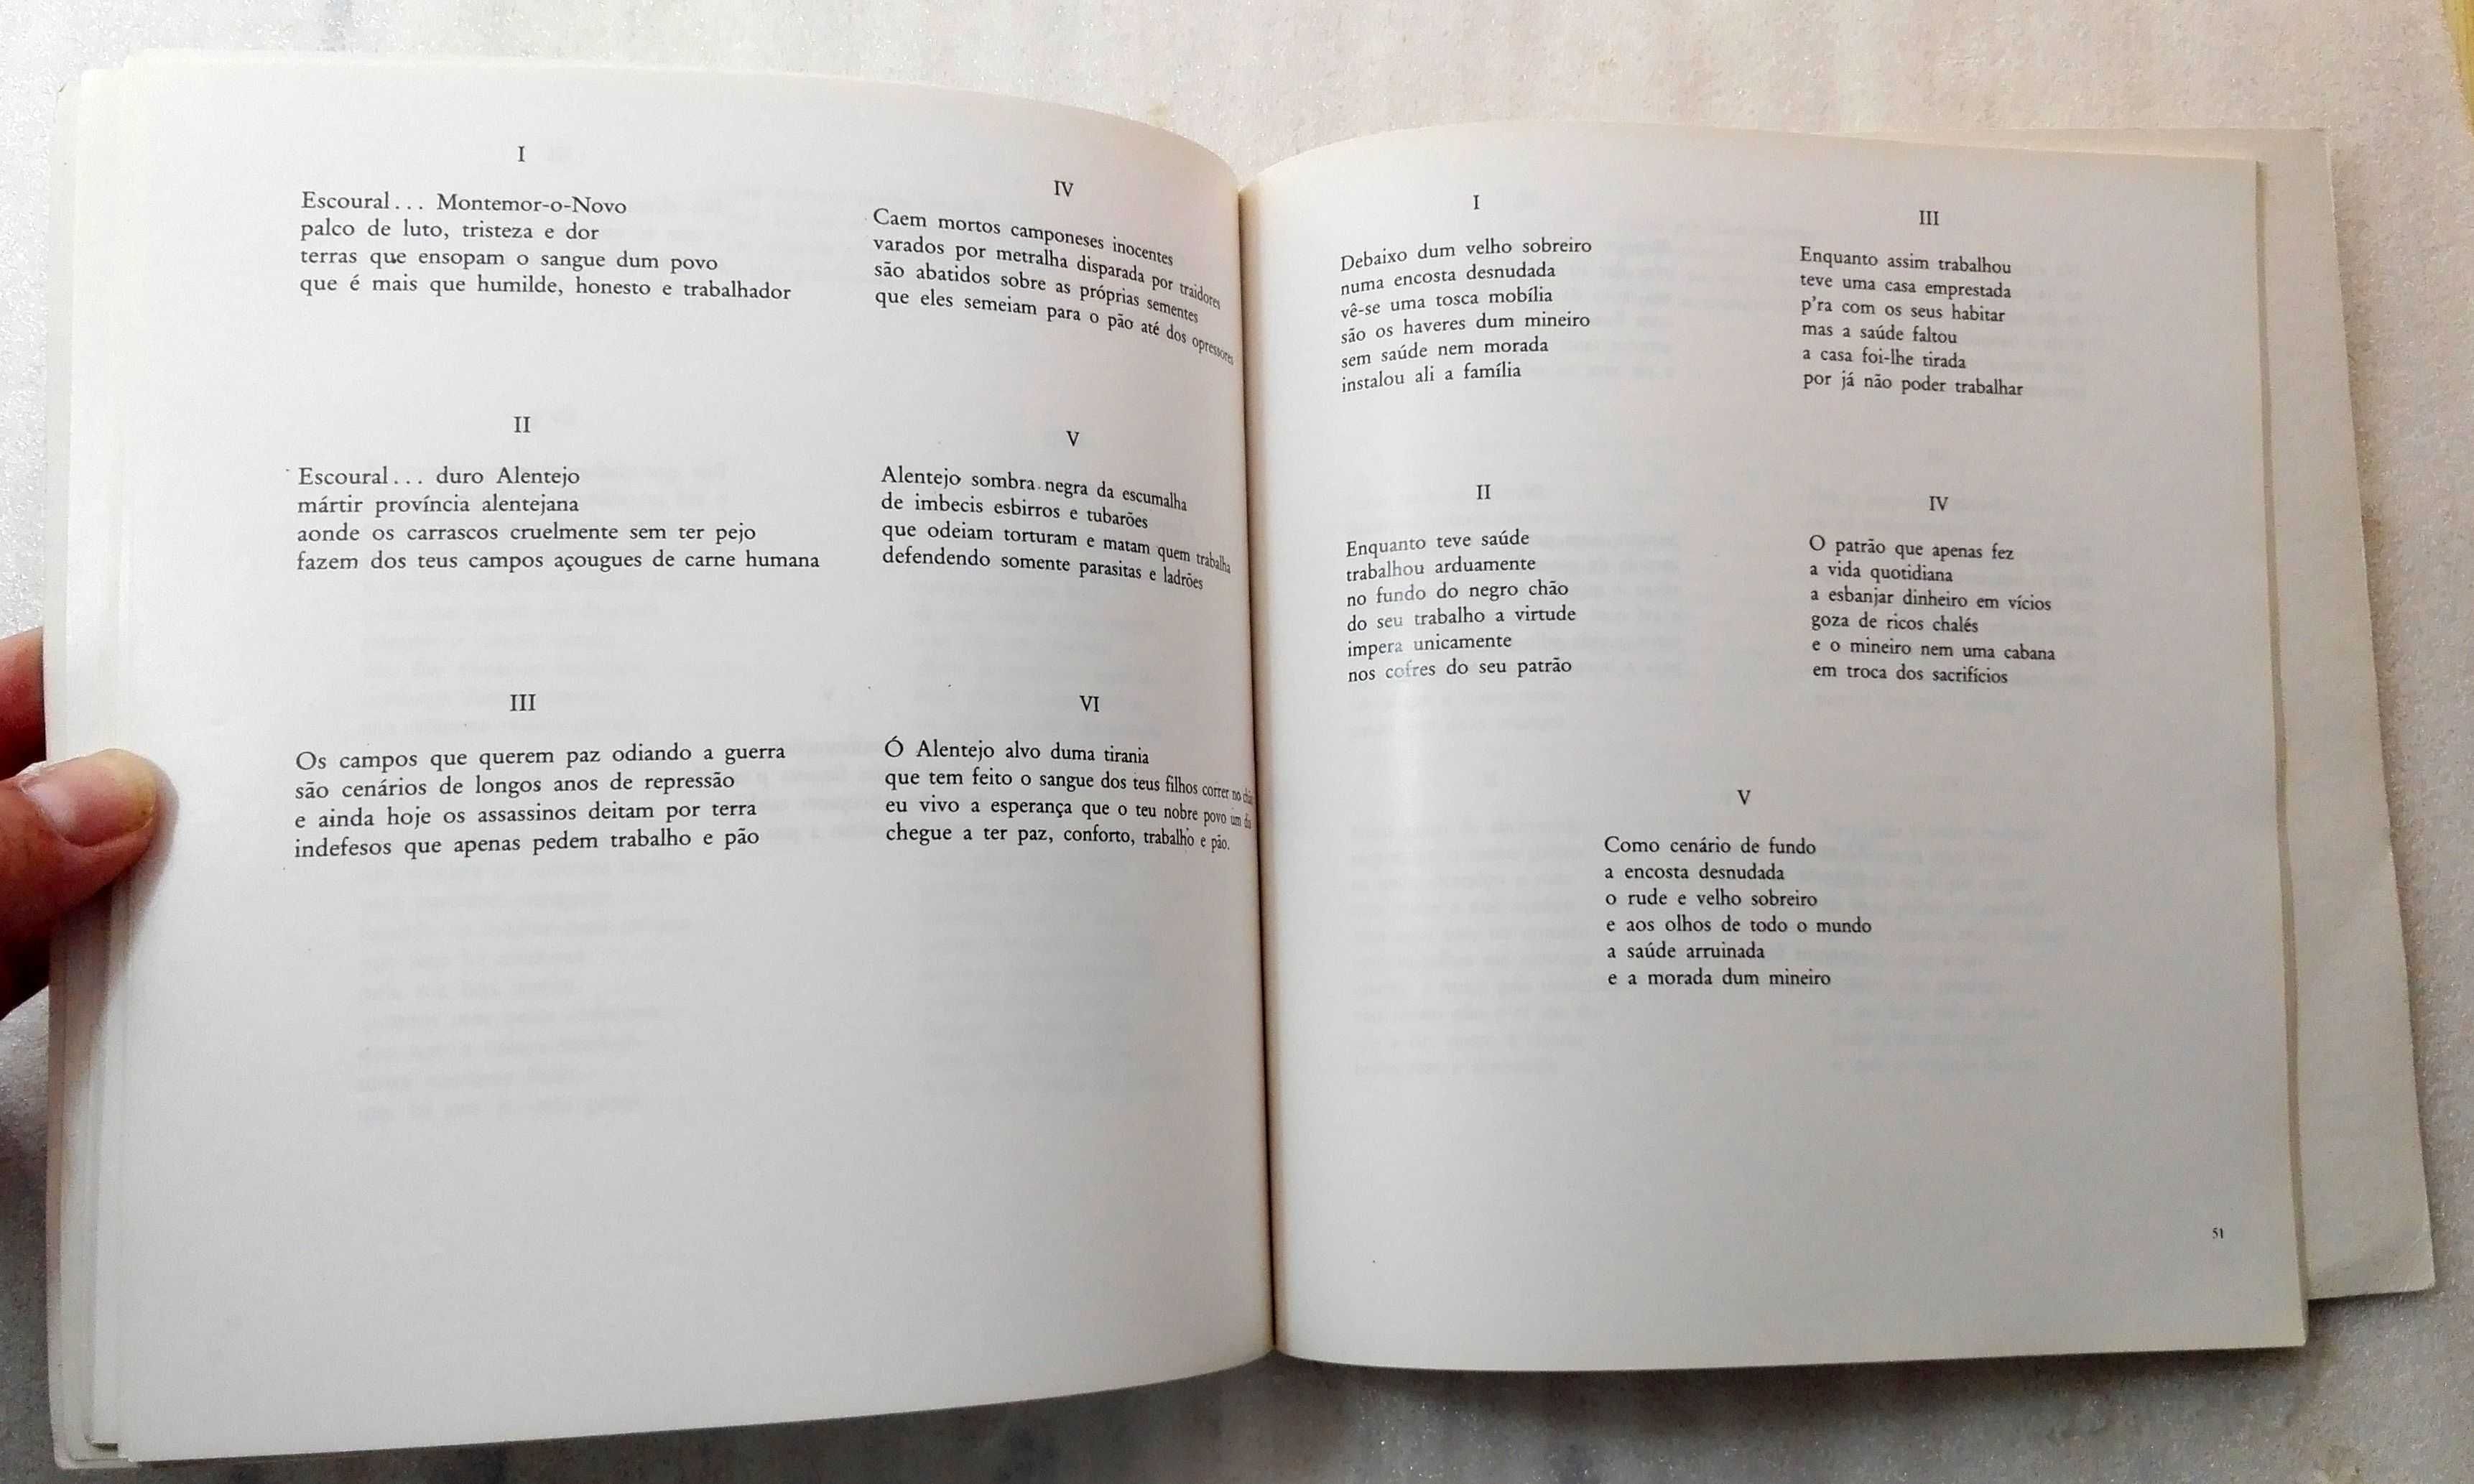 I
Escoural... Montemor-o-Novo
palco de luto, tristeza e dor
terras que ensopam o sangue dum povo
que é mais que humilde, honesto e trabalhador
II
Escoural... duro Alentejo
mártir província alentejana
aonde os carrascos cruelmente sem ter pejo
fazem dos teus campos açougues de carne humana
III
Os campos que querem paz odiando a guerra
são cenários de longos anos de repressão
e ainda hoje os assassinos deitam por terra
indefesos que apenas pedem trabalho e pão
IV
Caem mortos camponeses inocentes
varados por metralha disparada por traidores
são abatidos sobre as próprias sementes
que eles semeiam para o pão até dos opressores
V
Alentejo sombra negra da escumalha
de imbecis esbirros e tubarões
que odeiam torturam e matam quem trabalha
defendendo somente parasitas e ladrões
VI
Ó Alentejo alvo duma tirania
que tem feito o sangue dos teus filhos correr no
eu vivo a esperança que o teu nobre povo um
chegue a ter paz, conforto, trabalho e pão.
I
Debaixo dum velho sobreiro
numa encosta desnudada
vê-se uma tosca mobília
são os haveres dum mineiro
sem saúde nem morada
instalou ali a família
II
Enquanto teve saúde
trabalhou arduamente
no fundo do negro chão
do seu trabalho a virtude
impera unicamente
nos cofres do seu patrão
III
Enquanto assim trabalhou
teve uma casa emprestada
p'ra com os seus habitar
mas a saúde faltou
a casa foi-lhe tirada
por já não poder trabalhar
IV
O patrão que apenas fez
a vida quotidiana
a esbanjar dinheiro em vícios
goza de ricos chalés
e o mineiro nem uma cabana
em troca dos sacrifícios
V
Como cenário de fundo
a encosta desnudada
o rude e velho sobreiro
e aos olhos de todo o mundo
a saúde arruinada
e a morada dum mineiro
51